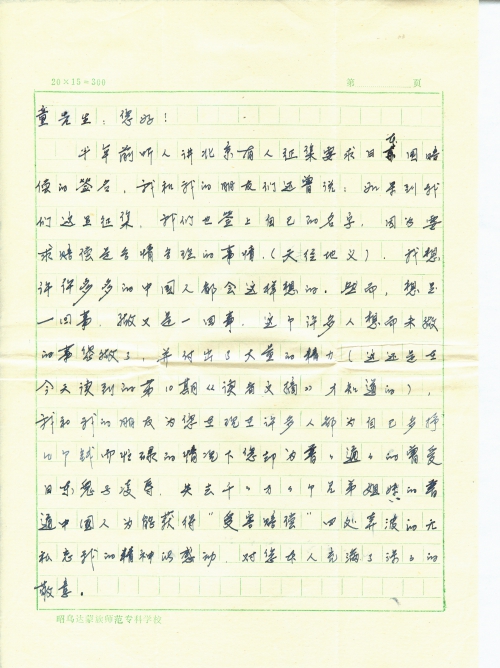 20×15=300 第 页
童先生:您好!
十年前听人讲北京有人征集要求日本国赔
偿的签名,我和我的朋友们还曾说:如果到我
们这里征集,我们也签上自己的名字,因为要
求赔偿是合情合理的事情。(天经地义)。我想
许许多多的中国人都会这样想的。然而,想是
一回事,做又是一回事,这个许多人想而未做
的事您做了,并付出了大量的精力(这还是在
今天读到的第10期《读者文摘》才知道的),
我和我的朋友为您在现在许多人都为自己多挣
几个钱而忙碌的情况下您却为普々通々的曾受
日东鬼子凌辱、失去千々万々个兄弟姐妹的普
通中国人为能获得“受害赔偿”四处奔波的无
私忘我的精神所感动,对您本人充满了深々的
敬意。
昭乌达蒙族师范专科学校